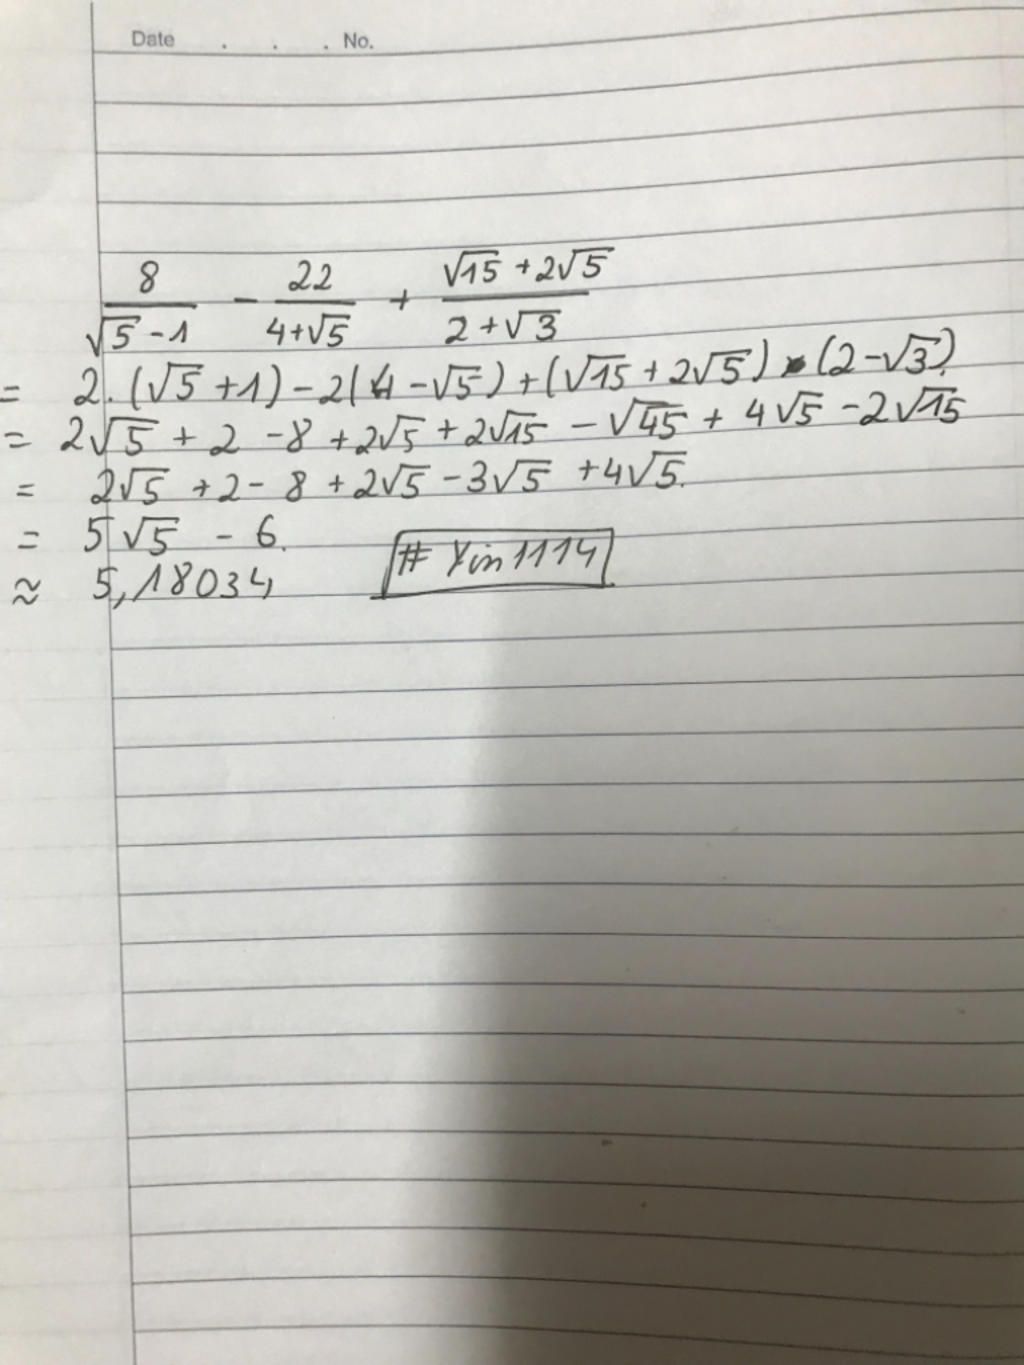 Date . . . No.
8/(√5 - 1) - 22/(4+√5) + (√15 + 2√5)/(2+√3)
= 2.(√5 + 1) - 2(4 - √5) + (√15 + 2√5) • (2 - √3).
= 2√5 + 2 - 8 + 2√5 + 2√15 - √45 + 4√5 - 2√15
= 2√5 + 2 - 8 + 2√5 - 3√5 + 4√5.
= 5√5 - 6.
≈ 5,18034
# Yin1114